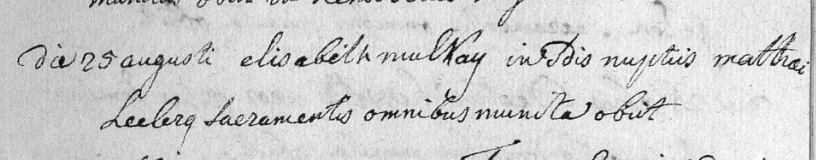 Die 25 augusti elisabeth mulkay in 2dis nuptiis mathæi
Leclerq sacramentis omnibus munita obiit